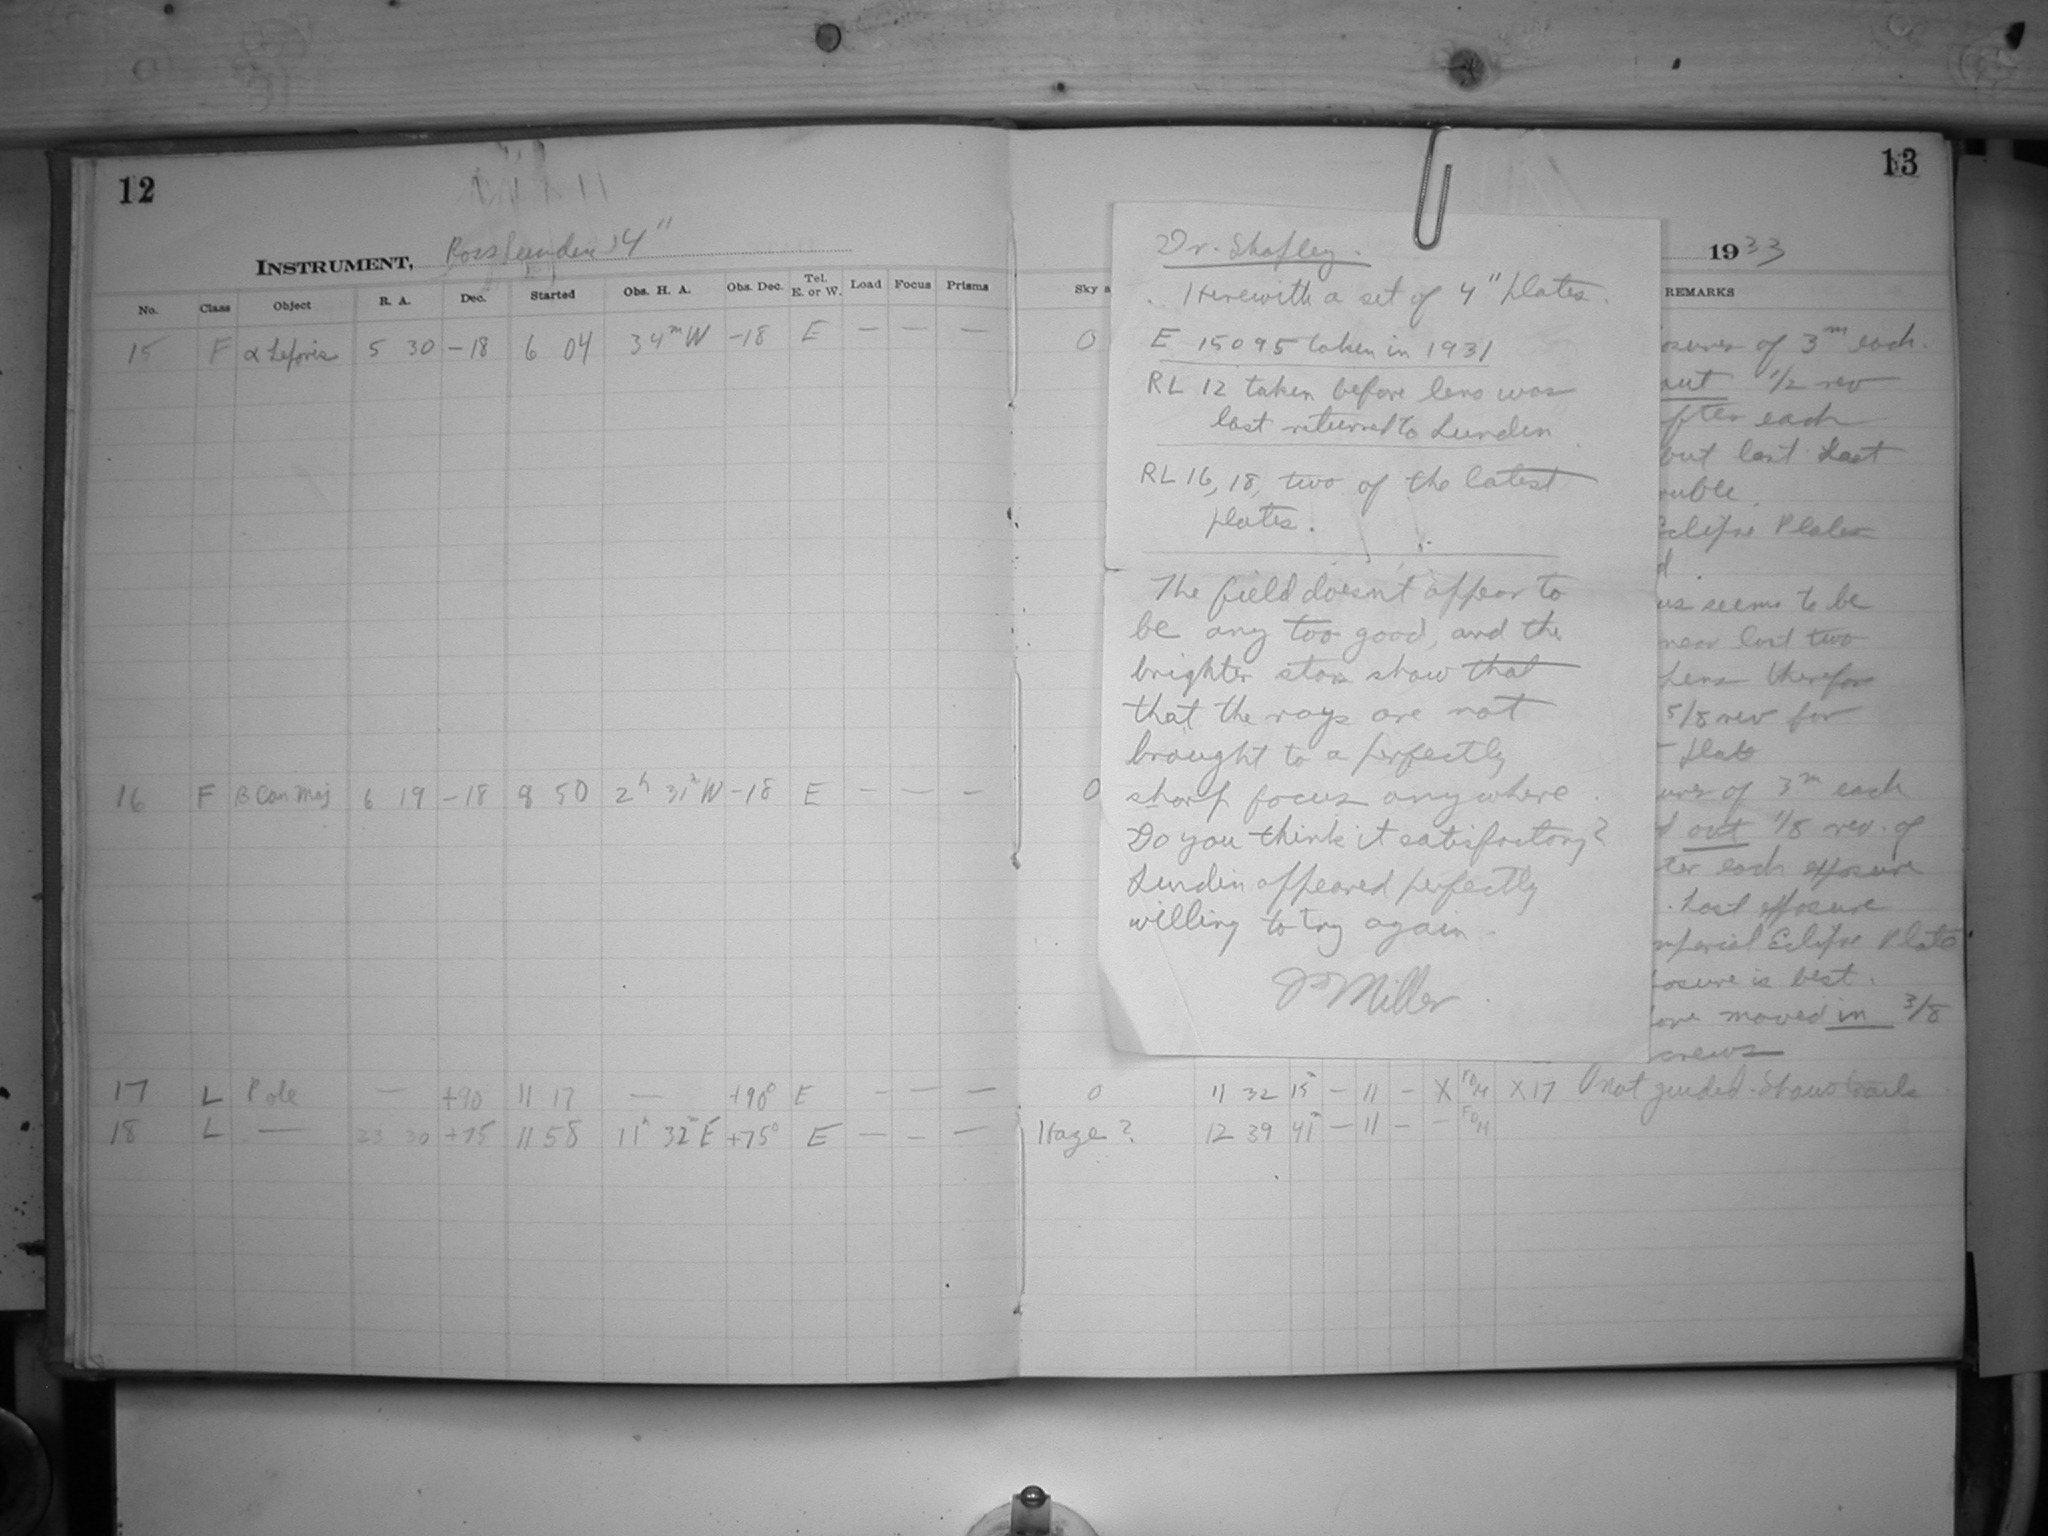 12
INSTRUMENT, Ross Lundin 4"
No. Class Object R. A. Dec. Started Obs. H. A. Obs. Dec. Tel. E. or W. Load Focus Prisms
15 F α Leporis 5 30 -18 6 04 34m W -18 E — — —
16 F β Can Maj 6 19 -18 8 50 2h 31m W -18 E — — —
17 L Pole — +90 11 17 — +90° E - — —
18 L — 23 30 +75 11 58 11h 32m E +75° E — - —
13
1933
Sky REMARKS
0
0
Dr. Shapley.
Herewith a set of 4" plates.
E 15095 taken in 1931
RL 12 taken before lens was
last returned to Lundin
RL 16, 18, two of the latest
plates.
The field doesn't appear to
be any too good, and the
brighter stars show that
that the rays are not
brought to a perfectly
sharp focus anywhere.
Do you think it satisfactory?
Lundin appeared perfectly
willing to try again.
Miller
osures of 3m each.
out 1/2 rev
fter each
but last Last
ouble.
Eclipse Plates
d
us seems to be
near last two
Lens therefore
5/8 rev for
plate
ures of 3m each
d out 1/8 rev. of
ter each exposure
. Last exposure
mperial Eclipse Plate.
posure is best.
moved in 3/8
crews
0 11 32 15m — 11 — X FDM X17 Not guided. Shows trails
Haze? 12 39 41m — 11 — — FDM